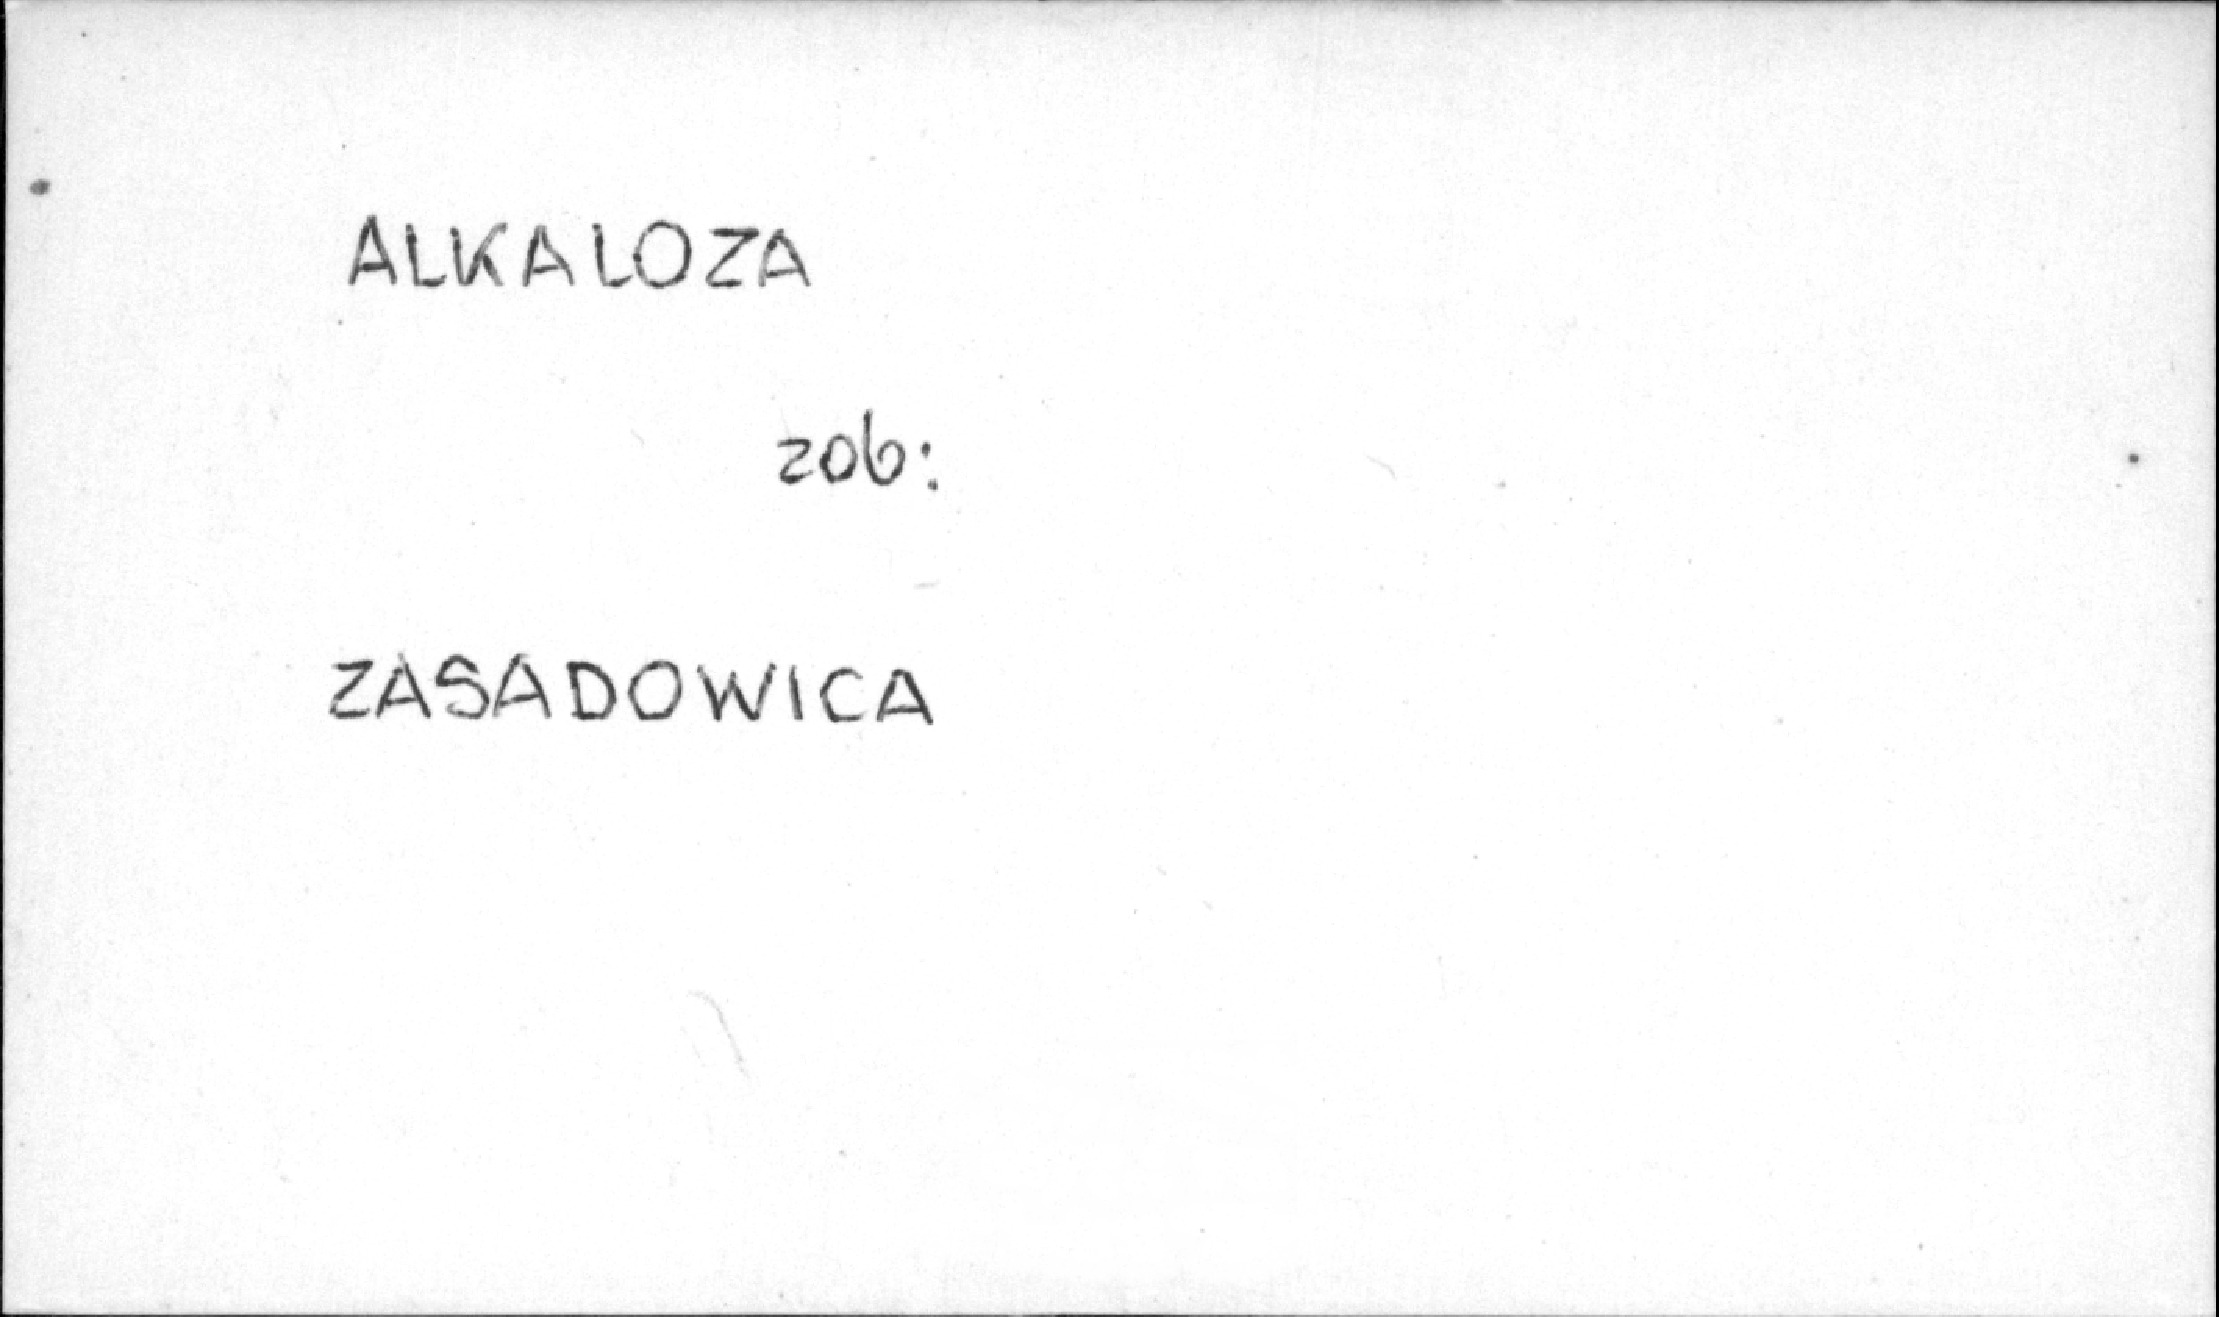 ALKALOZA
zob:
ZASADOWICA